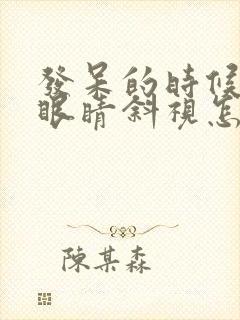 發呆的時候
眼睛斜視怎
陳某森